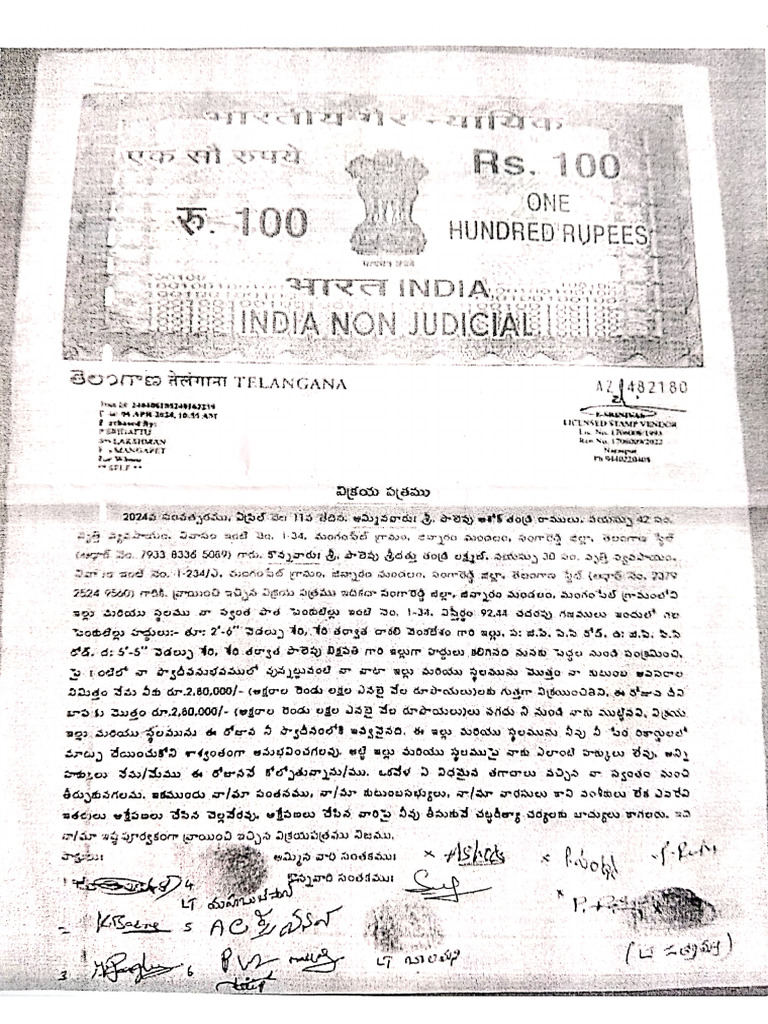 भारतीय गैर न्यायिक
एक सौ रुपये
Rs. 100
रु. 100
ONE
HUNDRED RUPEES
सत्यमेव जयते
भारत INDIA
INDIA NON JUDICIAL
తెలంగాణ तेलंगाना TELANGANA
AZ 482180
04 APR 2024, 10:55 AM
Purchased By:
LAKSHMAN
MANGAPET
For Whom
** SELF **
E. SRINIVAS
LICENSED STAMP VENDOR
Lic. No. 1706008/1993
Ren No. 1706009/2022
Narsapur
Ph 9440220408
విక్రయ పత్రము
2024వ సంవత్సరము, ఏప్రిల్ నెల 11వ తేదిన. అమ్మినవారు: శ్రీ. పాలెపు అశోక్ తండ్రి రాములు, వయస్సు 42 సం.
వృత్తి వ్యవసాయం, నివాసం ఇంటి నెం. 1-34, మంగంపేట్ గ్రామం, జిన్నారం మండలం, సంగారెడ్డి జిల్లా, తెలంగాణ స్టేట్
(ఆధార్ నెం. 7933 8336 5089) గారు. కొన్నవారు: శ్రీ. పాలెపు శ్రీదత్తు తండ్రి లక్ష్మణ్, వయస్సు 30 సం. వృత్తి వ్యవసాయం,
నివాసం ఇంటి నెం. 1-234/ఎ, మంగంపేట్ గ్రామం, జిన్నారం మండలం, సంగారెడ్డి జిల్లా, తెలంగాణ స్టేట్ (ఆధార్ నెం. 2379
2524 9560) గారికి. వ్రాయించి ఇచ్చిన విక్రయ పత్రము ఏమనగా సంగారెడ్డి జిల్లా, జిన్నారం మండలం, మంగంపేట్ గ్రామంలోని
ఇల్లు మరియు స్థలము నా స్వంత పాత పెంకుటిల్లు ఇంటి నెం. 1-34. విస్తీర్ణం 92.44 చదరపు గజములు ఇందులో గల
పెంకుటిల్లు హద్దులు:- తూ: 2'-6" వెడల్పు శేరి, శేరి తర్వాత దాకలి వెంకటేశం గారి ఇల్లు, ప: జి.పి. సి.సి రోడ్. ఉ: జి.పి. సి.సి
రోడ్. ద: 5'-5" వెడల్పు శేరి, శేరి తర్వాత పాలెపు లక్ష్మపతి గారి ఇల్లుగా హద్దులు కలిగినది మనకు పెద్దల నుండి సంక్రమించి,
పై ఇంటిలో నా స్వాధీనానుభవములో వున్నట్టువంటి నా వాటా ఇల్లు మరియు స్థలమును మొత్తం నా కుటుంబ అవసరాల
నిమిత్తం నేను మీకు రూ.2,80,000/- (అక్షరాల రెండు లక్షల ఎనబై వేల రూపాయలు)లకు గుత్తగా విక్రయించితిని, ఈ రోజున దీని
బాపకు మొత్తం రూ.2,80,000/- (అక్షరాల రెండు లక్షల ఎనబై వేల రూపాయలు)లు నగదు నీ నుండి నాకు ముట్టినవి, విక్రయ
ఇల్లు మరియు స్థలమును ఈ రోజున నీ స్వాధీనంలోకి ఇవ్వనైనది. ఈ ఇల్లు మరియు స్థలమును నీవు నీ పేర రికార్డులలో
మార్పు చేయించుకొని శాశ్వతంగా అనుభవించగలవు. అట్టి ఇల్లు మరియు స్థలముపై నాకు ఎలాంటి హక్కులు లేవు, అన్ని
హక్కులు నేను/మేము ఈ రోజుననే కోల్పోతున్నాను/ము. ఒకవేళ ఏ విధమైన తగాదాలు వచ్చిన నా స్వంతం నుంచి
తీర్చుకునగలము. ఇకముందు నా/మా సంతానము, నా/మా కుటుంబసభ్యులు, నా/మా వారసులు కాని వంశీకులు లేక ఎవరేని
ఇతరులు ఆక్షేపణలు చేసిన చెల్లనేరవు, ఆక్షేపణలు చేసిన వారిపై నీవు తీసుకునే చట్టరీత్యా చర్యలకు బాధ్యులు కాగలరు. ఇది
నా/మా ఇష్ట పూర్వకంగా వ్రాయించి ఇచ్చిన విక్రయపత్రము నిజము.
సాక్షులు:
అమ్మిన వారి సంతకము:
x Ashok
కొన్నవారి సంతకము:
1
4
LT
2
5
3
6
LT బాలమణి